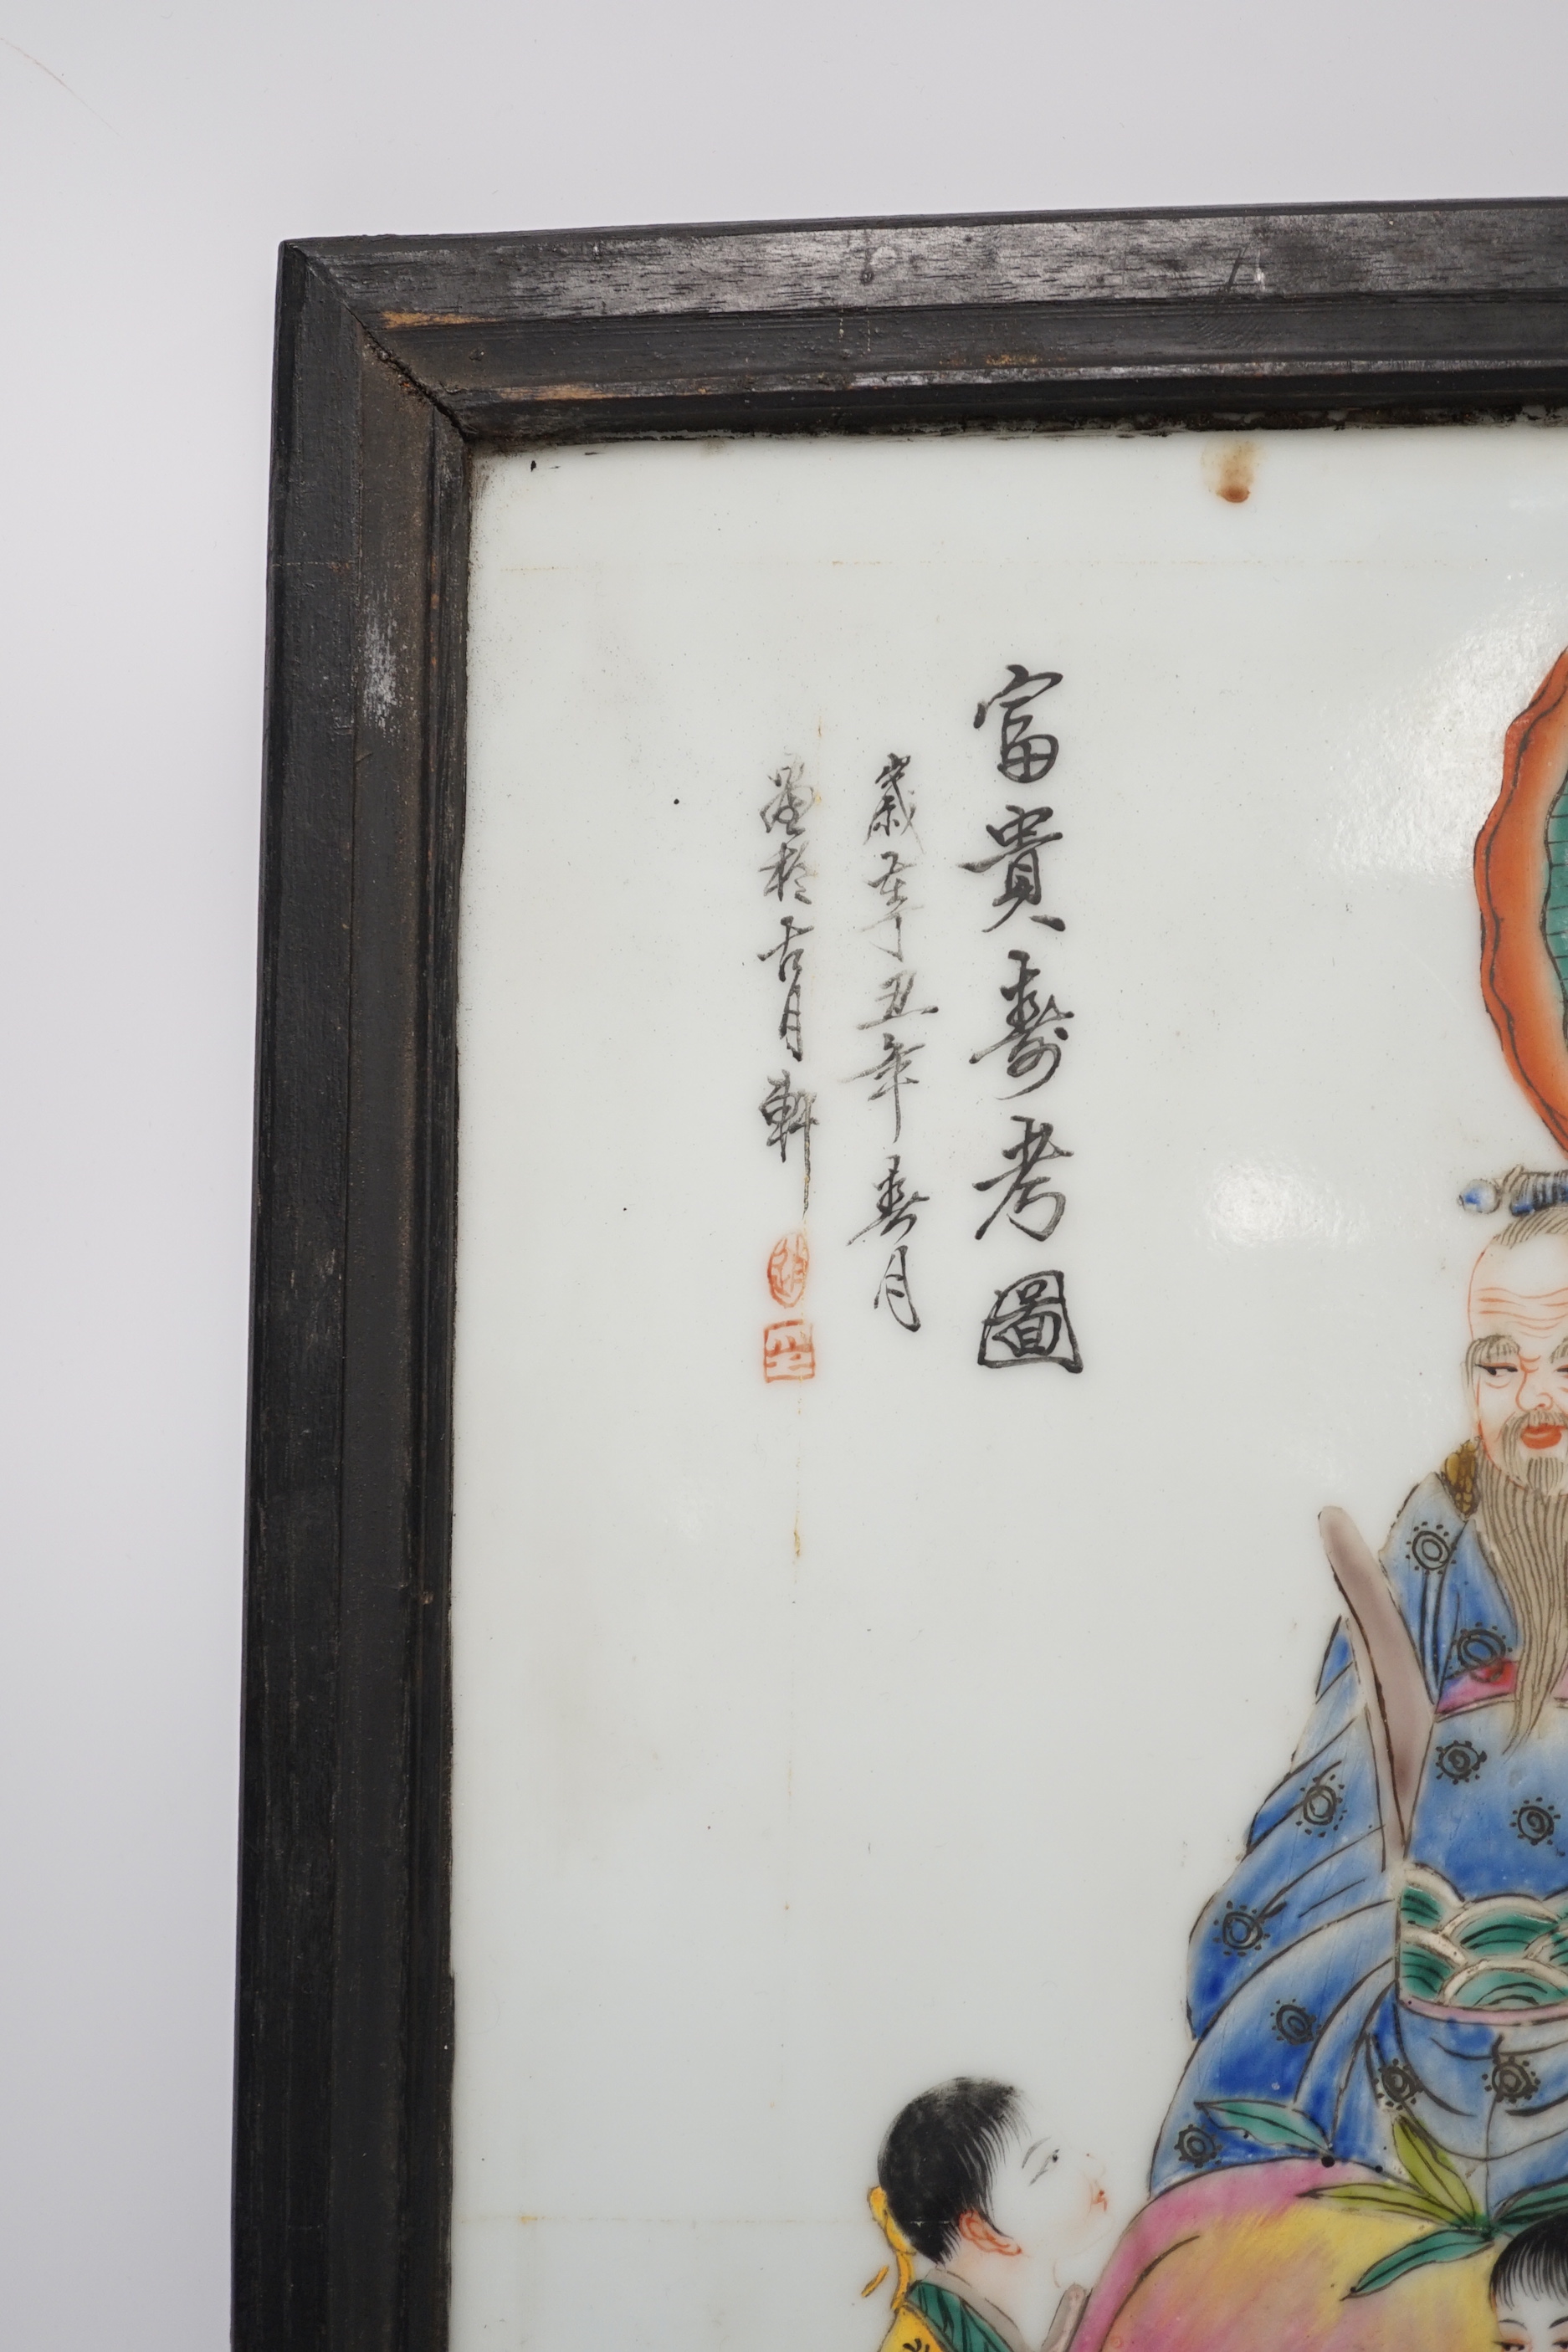 富貴壽考圖
歲在丁丑年春月
畫於古月軒